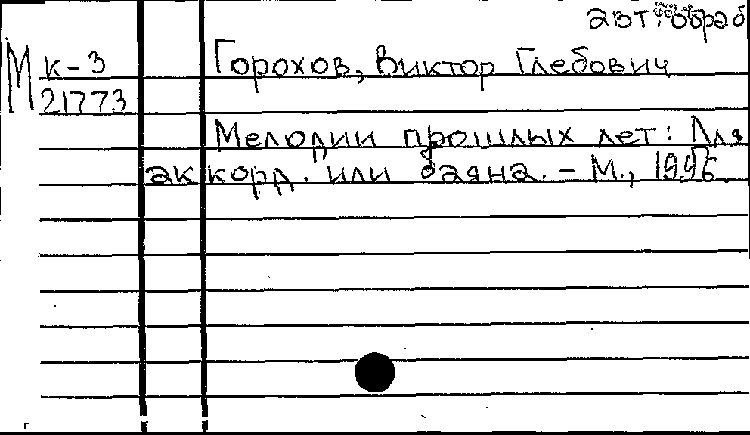 авт. обраб
М к-3
21773
Горохов, Виктор Глебович
Мелодии прошлых лет: Для
аккорд. или баяна. - М., 1996.